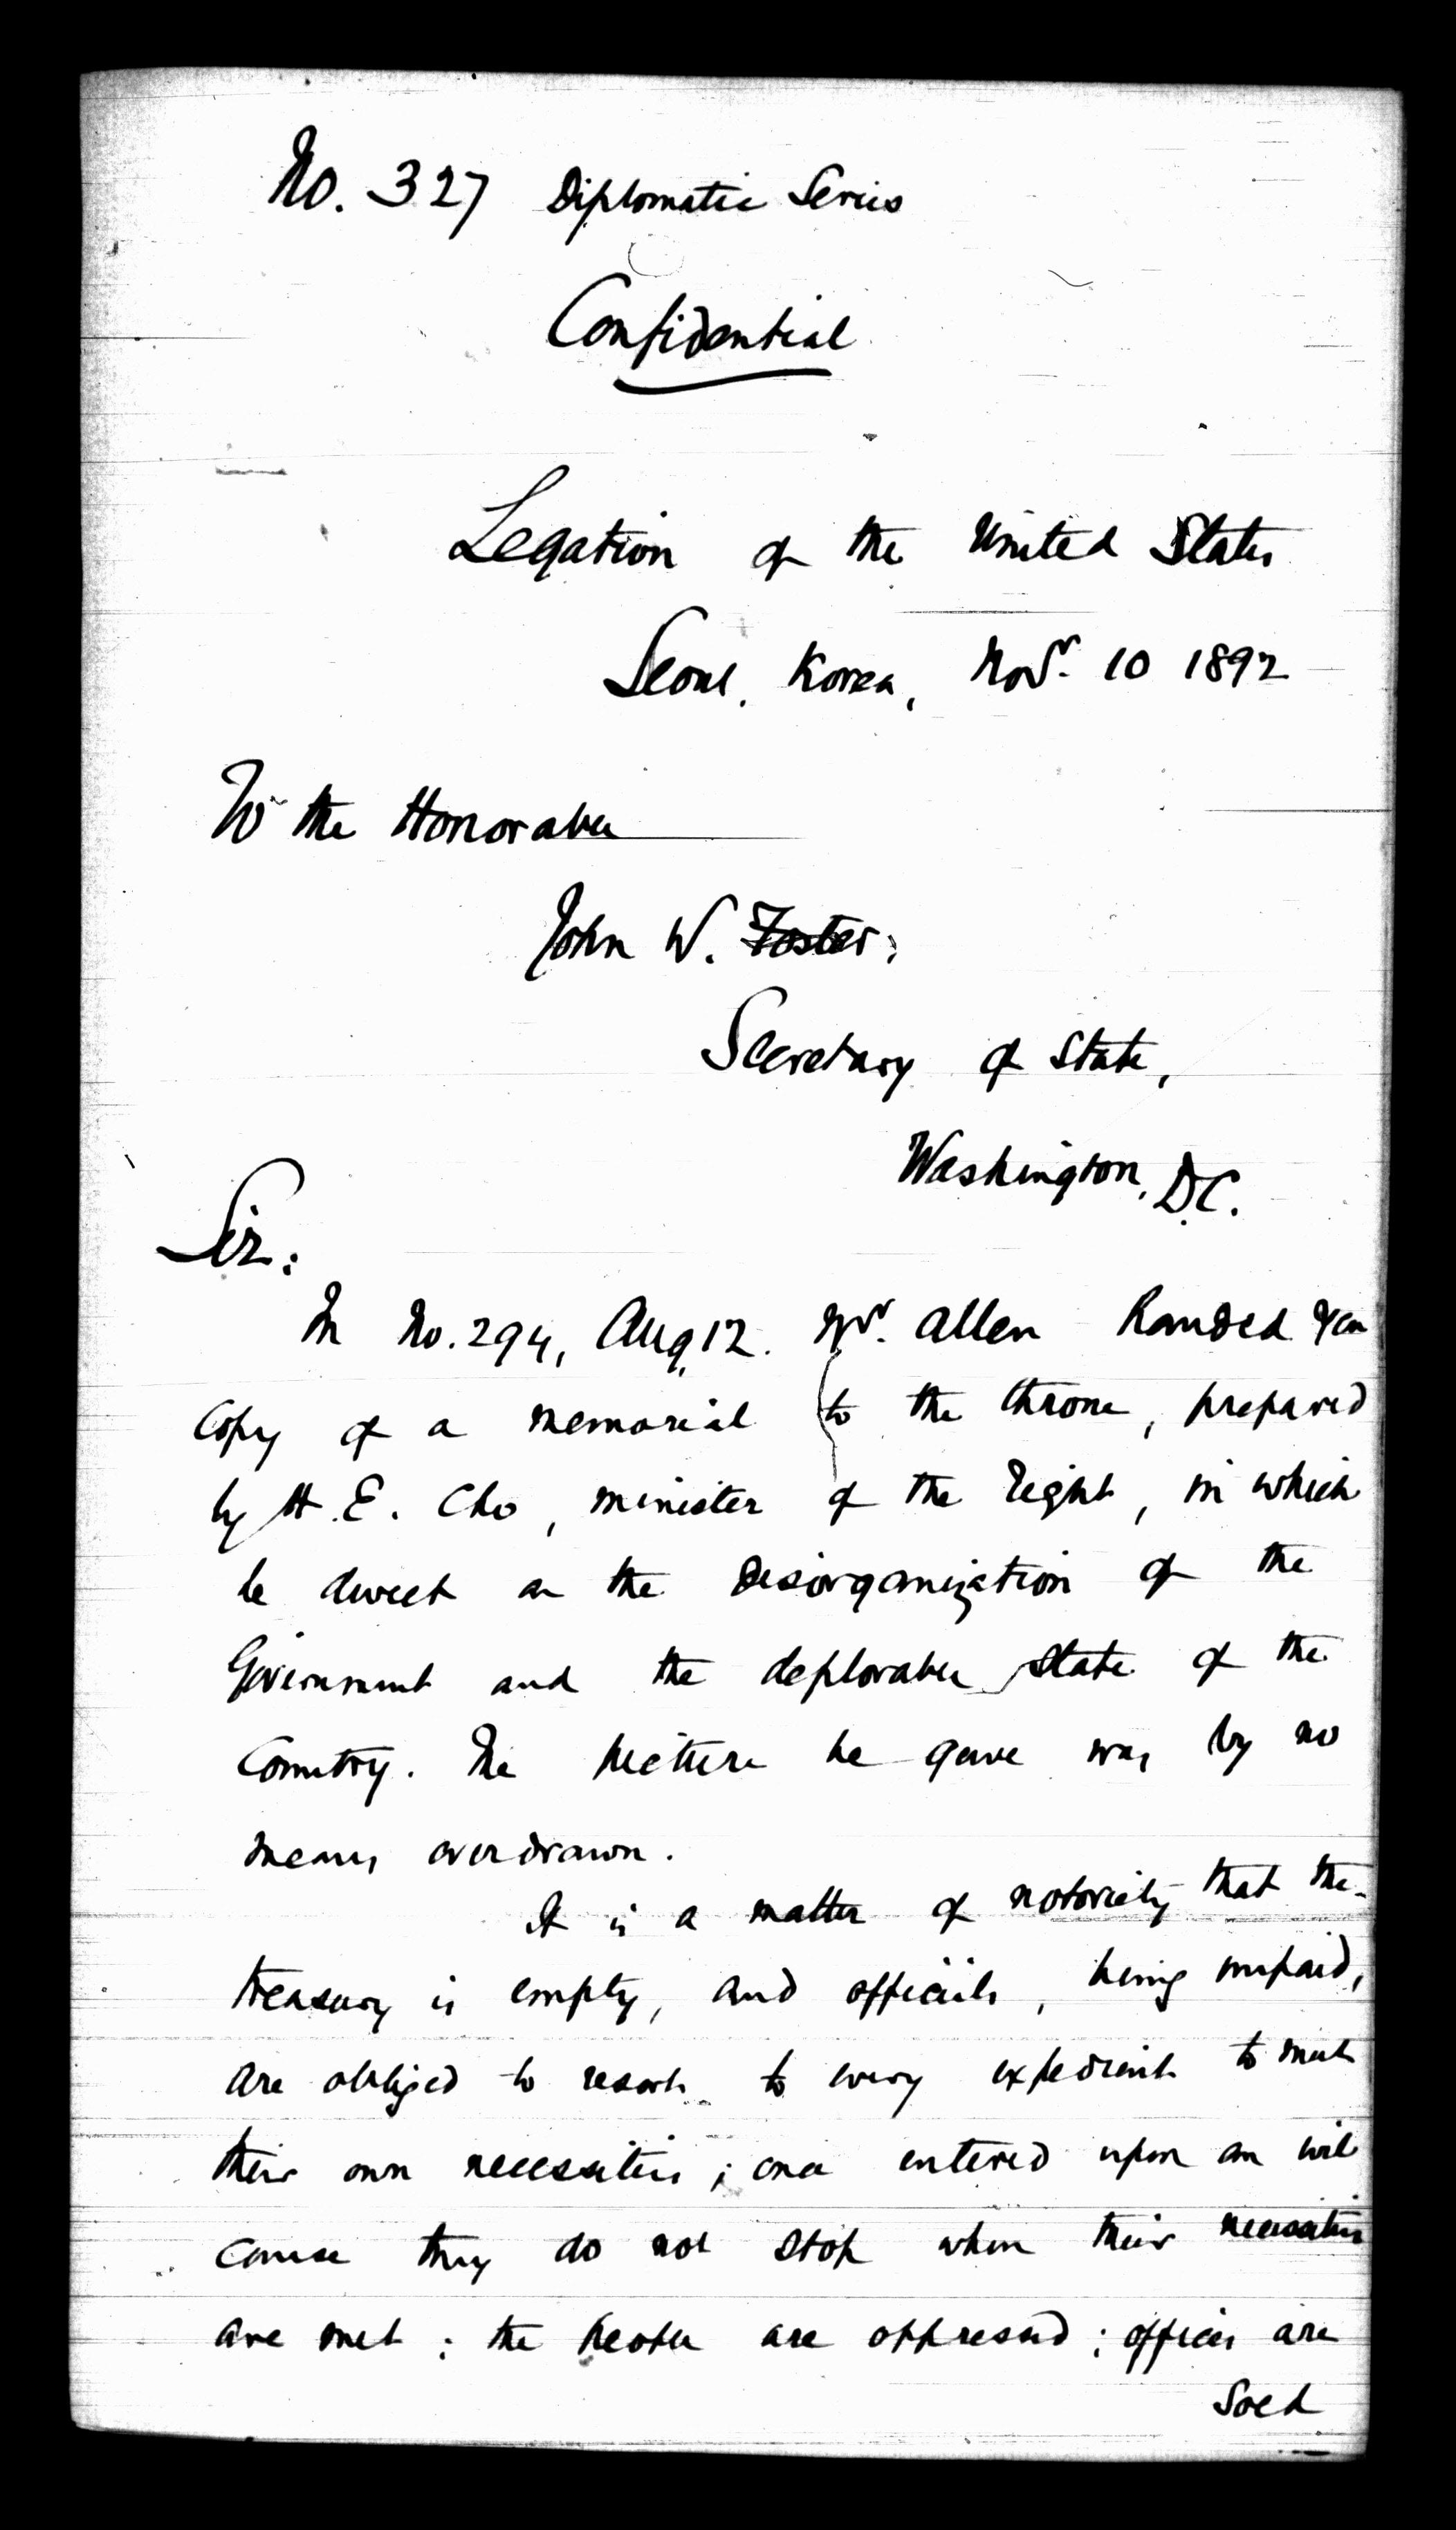 No. 327 Diplomatic Series
Confidential
Legation of the United States
Seoul, Korea, Novr. 10 1892
To the Honorable
John W. Foster,
Secretary of State,
Washington, D.C.
Sir:
In No. 294, Aug. 12. Mr. Allen handed you
copy of a memorial to the throne, prepared
by H. E. Cho, minister of the right, in which
he dwelt on the disorganization of the
Government and the deplorable state of the
Country. The picture he gave was by no
means overdrawn.
It is a matter of notoriety that the
treasury is empty, and officials, being unpaid,
are obliged to resort to every expedient to meet
their own necessities; once entered upon an evil
course they do not stop when their necessities
are met; the people are oppressed; offices are
Sold